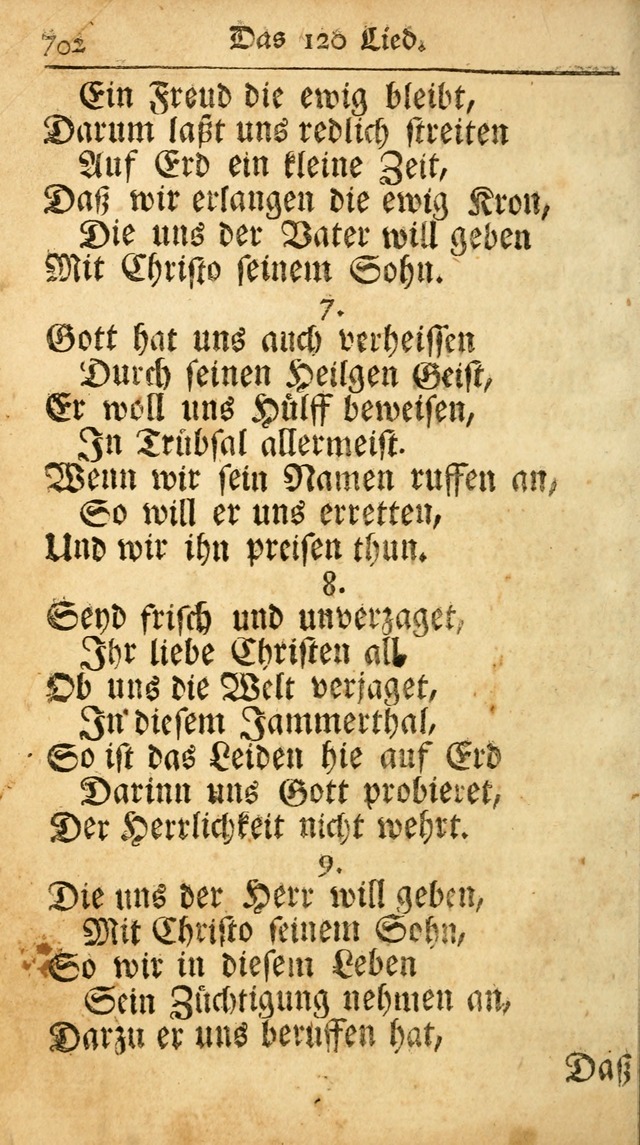 702 Das 120 Lied.
Ein Freud die ewig bleibt,
Darum laßt uns redlich streiten
Auf Erd ein kleine Zeit,
Daß wir erlangen die ewig Kron,
Die uns der Vater will geben
Mit Christo seinem Sohn.
7.
Gott hat uns auch verheissen
Durch seinen Heilgen Geist,
Er woll uns Hülff beweisen,
In Trübsal allermeist.
Wenn wir sein Namen ruffen an,
So will er uns erretten,
Und wir ihn preisen thun.
8.
Seyd frisch und unverzaget,
Ihr liebe Christen all
Ob uns die Welt verjaget,
In diesem Jammerthal,
So ist das Leiden hie auf Erd
Darinn uns Gott probieret,
Der Herrlichkeit nicht wehrt.
9.
Die uns der Herr will geben,
Mit Christo seinem Sohn,
So wir in diesem Leben
Sein Züchtigung nehmen an,
Darzu er uns beruffen hat,
Daß